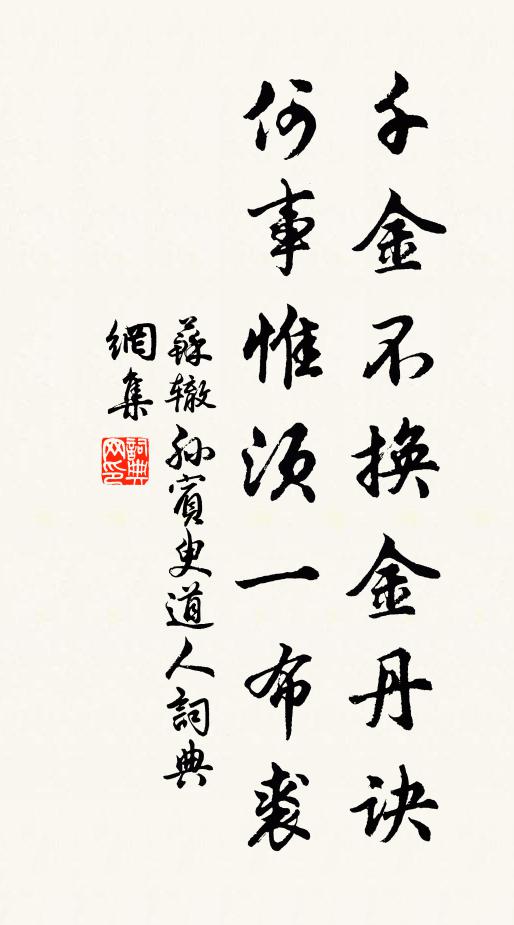 千金不換金丹訣
何事惟須一布裘
蘇轍孫賓叟道人詞典
網集
詞典
网印